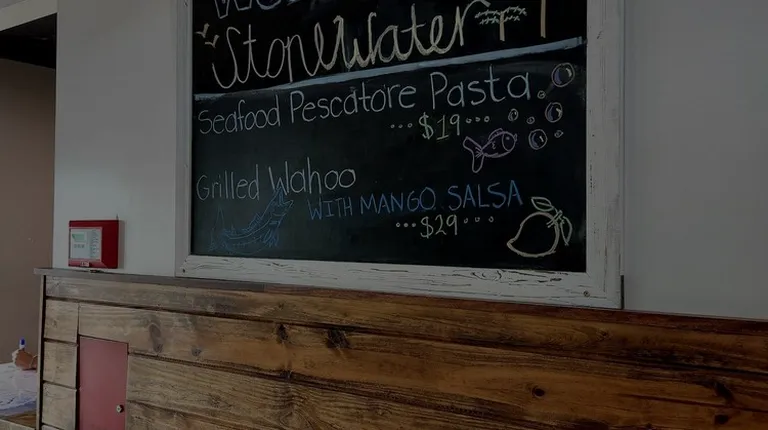 StoneWater
Seafood Pescatore Pasta
...$19...
Grilled Wahoo
WITH MANGO SALSA
...$29...